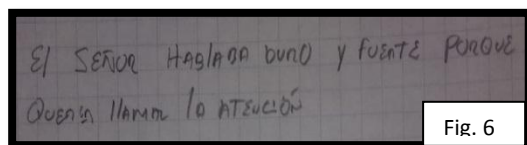 El SEÑOR HABlABA DURO y fUERTE PORQUE
QUERIA llAMAR lA ATEUCIÓN
Fig. 6